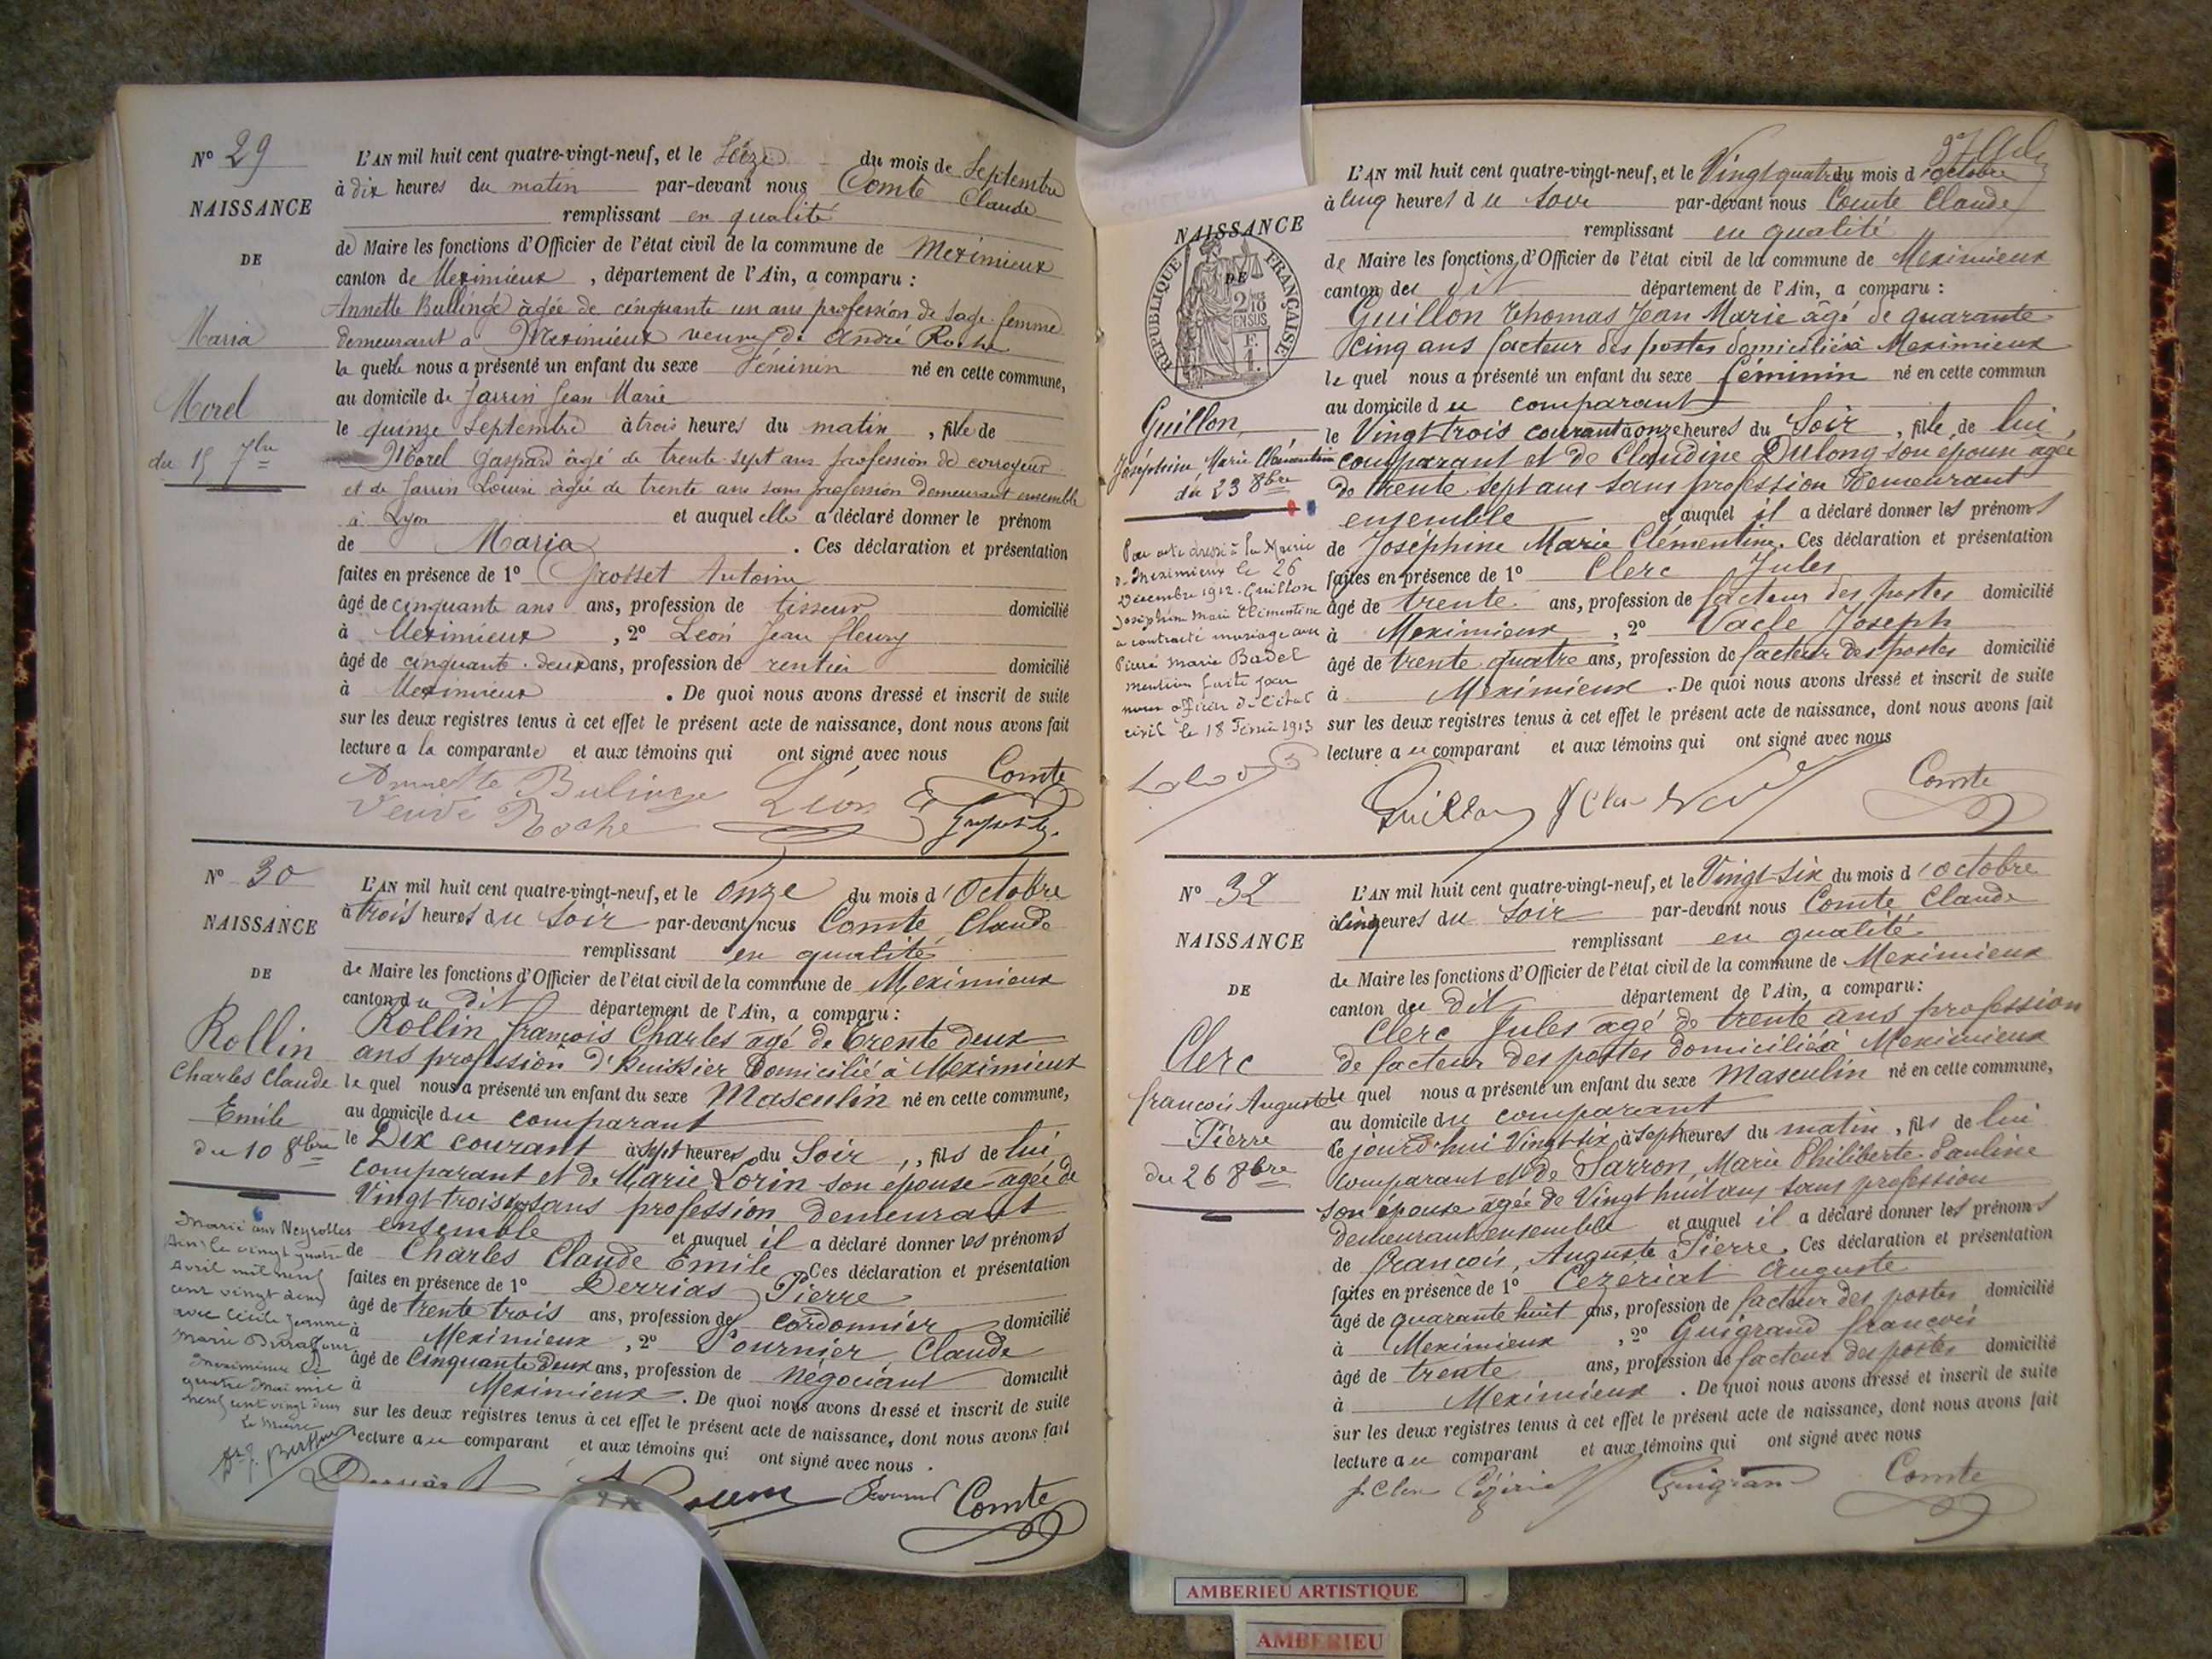 N° 29
NAISSANCE
DE
Maria
Morel
du 15 7bre
L'AN mil huit cent quatre-vingt-neuf, et le Seize du mois de Septembre
à dix heures du matin par-devant nous Comte Claude
remplissant en qualité
de Maire les fonctions d'Officier de l'état civil de la commune de Meximieux
canton de Meximieux, département de l'Ain, a comparu :
Annette Bullinge âgée de cinquante un ans profession de sage-femme
demeurant à Meximieux veuve de André Roche
la quelle nous a présenté un enfant du sexe Féminin né en cette commune,
au domicile de Jarrin Jean Marie
le quinze Septembre à trois heures du matin, fille de
Morel Gaspard âgé de trente-sept ans profession de corroyeur
et de Jarrin Louise âgée de trente ans sans profession demeurant ensemble
à Lyon et auquel elle a déclaré donner le prénom
de Maria. Ces déclaration et présentation
faites en présence de 1° Grosset Antoine
âgé de cinquante ans ans, profession de tisseur domicilié
à Meximieux, 2° Léon Jean fleury
âgé de cinquante-deux ans, profession de rentier domicilié
à Meximieux. De quoi nous avons dressé et inscrit de suite
sur les deux registres tenus à cet effet le présent acte de naissance, dont nous avons fait
lecture a la comparante et aux témoins qui ont signé avec nous
Annette Bulinge Léon Comte
Veuve Roche
N° 30
NAISSANCE
DE
Rollin
Charles Claude
Emile
du 10 8bre
Marié aux Neyrolles
Ain le vingt quatre
Avril mil neuf
cent vingt deux
avec Cécile Jeanne
Marie
Meximieux le
quatre Mai mil
neuf cent vingt deux
Le Maire
L'AN mil huit cent quatre-vingt-neuf, et le onze du mois d'Octobre
à trois heures du soir par-devant nous Comte Claude
remplissant en qualité
de Maire les fonctions d'Officier de l'état civil de la commune de Meximieux
canton du dit département de l'Ain, a comparu :
Rollin françois Charles agé de trente deux
ans profession d'huissier domicilié à Meximieux
le quel nous a présenté un enfant du sexe Masculin né en cette commune,
au domicile du comparant
le Dix courant à sept heures du Soir, fils de lui
comparant et de Marie Lorin son épouse agée de
Vingt trois ans sans profession demeurant
ensemble et auquel il a déclaré donner les prénoms
de Charles Claude Emile Ces déclaration et présentation
faites en présence de 1° Derrias Pierre
âgé de trente trois ans, profession de cordonnier domicilié
à Meximieux, 2° Fournier Claude
âgé de Cinquante Deux ans, profession de Négociant domicilié
à Meximieux. De quoi nous avons dressé et inscrit de suite
sur les deux registres tenus à cet effet le présent acte de naissance, dont nous avons fait
lecture au comparant et aux témoins qui ont signé avec nous.
Comte
NAISSANCE
DE
RÉPUBLIQUE FRANÇAISE
2/10 EN SUS
Guillon
Joséphine Marie Clémentine
du 23 8bre
Par acte dressé à la Mairie
de Meximieux le 26
Décembre 1912. Guillon
Joséphine Marie Clémentine
a contracté mariage avec
Pierre Marie Badel
Mention faite par
nous officier de l'état
civil le 18 Février 1913
L'AN mil huit cent quatre-vingt-neuf, et le Vingt quatre du mois d'octobre
à cinq heures du soir par-devant nous Comte Claude
remplissant en qualité
de Maire les fonctions d'Officier de l'état civil de la commune de Meximieux
canton du dit département de l'Ain, a comparu :
Guillon Thomas Jean Marie âgé de quarante
cinq ans facteur des postes domicilié à Meximieux
le quel nous a présenté un enfant du sexe féminin né en cette commun
au domicile du comparant
le Vingt trois courant à onze heures du Soir, fille de lui
comparant et de Claudine Dulong son épouse agée
de trente sept ans sans profession Demeurant
ensemble et auquel il a déclaré donner les prénoms
de Joséphine Marie Clémentine. Ces déclaration et présentation
faites en présence de 1° Clerc Jules
âgé de trente ans, profession de facteur des postes domicilié
à Meximieux, 2° Vacle Joseph
âgé de trente quatre ans, profession de facteur des postes domicilié
à Meximieux. De quoi nous avons dressé et inscrit de suite
sur les deux registres tenus à cet effet le présent acte de naissance, dont nous avons fait
lecture au comparant et aux témoins qui ont signé avec nous
Guillon J Clerc Comte
N° 32
NAISSANCE
DE
Clerc
françois Auguste
Pierre
du 26 8bre
L'AN mil huit cent quatre-vingt-neuf, et le Vingt-six du mois d'octobre
à cinq heures du soir par-devant nous Comte Claude
remplissant en qualité
de Maire les fonctions d'Officier de l'état civil de la commune de Meximieux
canton du dit département de l'Ain, a comparu :
Clerc Jules agé de trente ans profession
de facteur des postes domicilié à Meximieux
le quel nous a présenté un enfant du sexe Masculin né en cette commune,
au domicile du comparant
le jourd'hui Vingt-six à sept heures du matin, fils de lui
comparant et de Sarron, Marie Philiberte Pauline
son épouse agée de Vingt huit ans sans profession
demeurant ensemble et auquel il a déclaré donner les prénoms
de françois, Auguste Pierre. Ces déclaration et présentation
faites en présence de 1° Cézériat Auguste
âgé de quarante huit ans, profession de facteur des postes domicilié
à Meximieux, 2° Guigrand françois
âgé de trente ans, profession de facteur des postes domicilié
à Meximieux. De quoi nous avons dressé et inscrit de suite
sur les deux registres tenus à cet effet le présent acte de naissance, dont nous avons fait
lecture au comparant et aux témoins qui ont signé avec nous
J. Clerc Guigrand Comte
AMBERIEU ARTISTIQUE
AMBERIEU